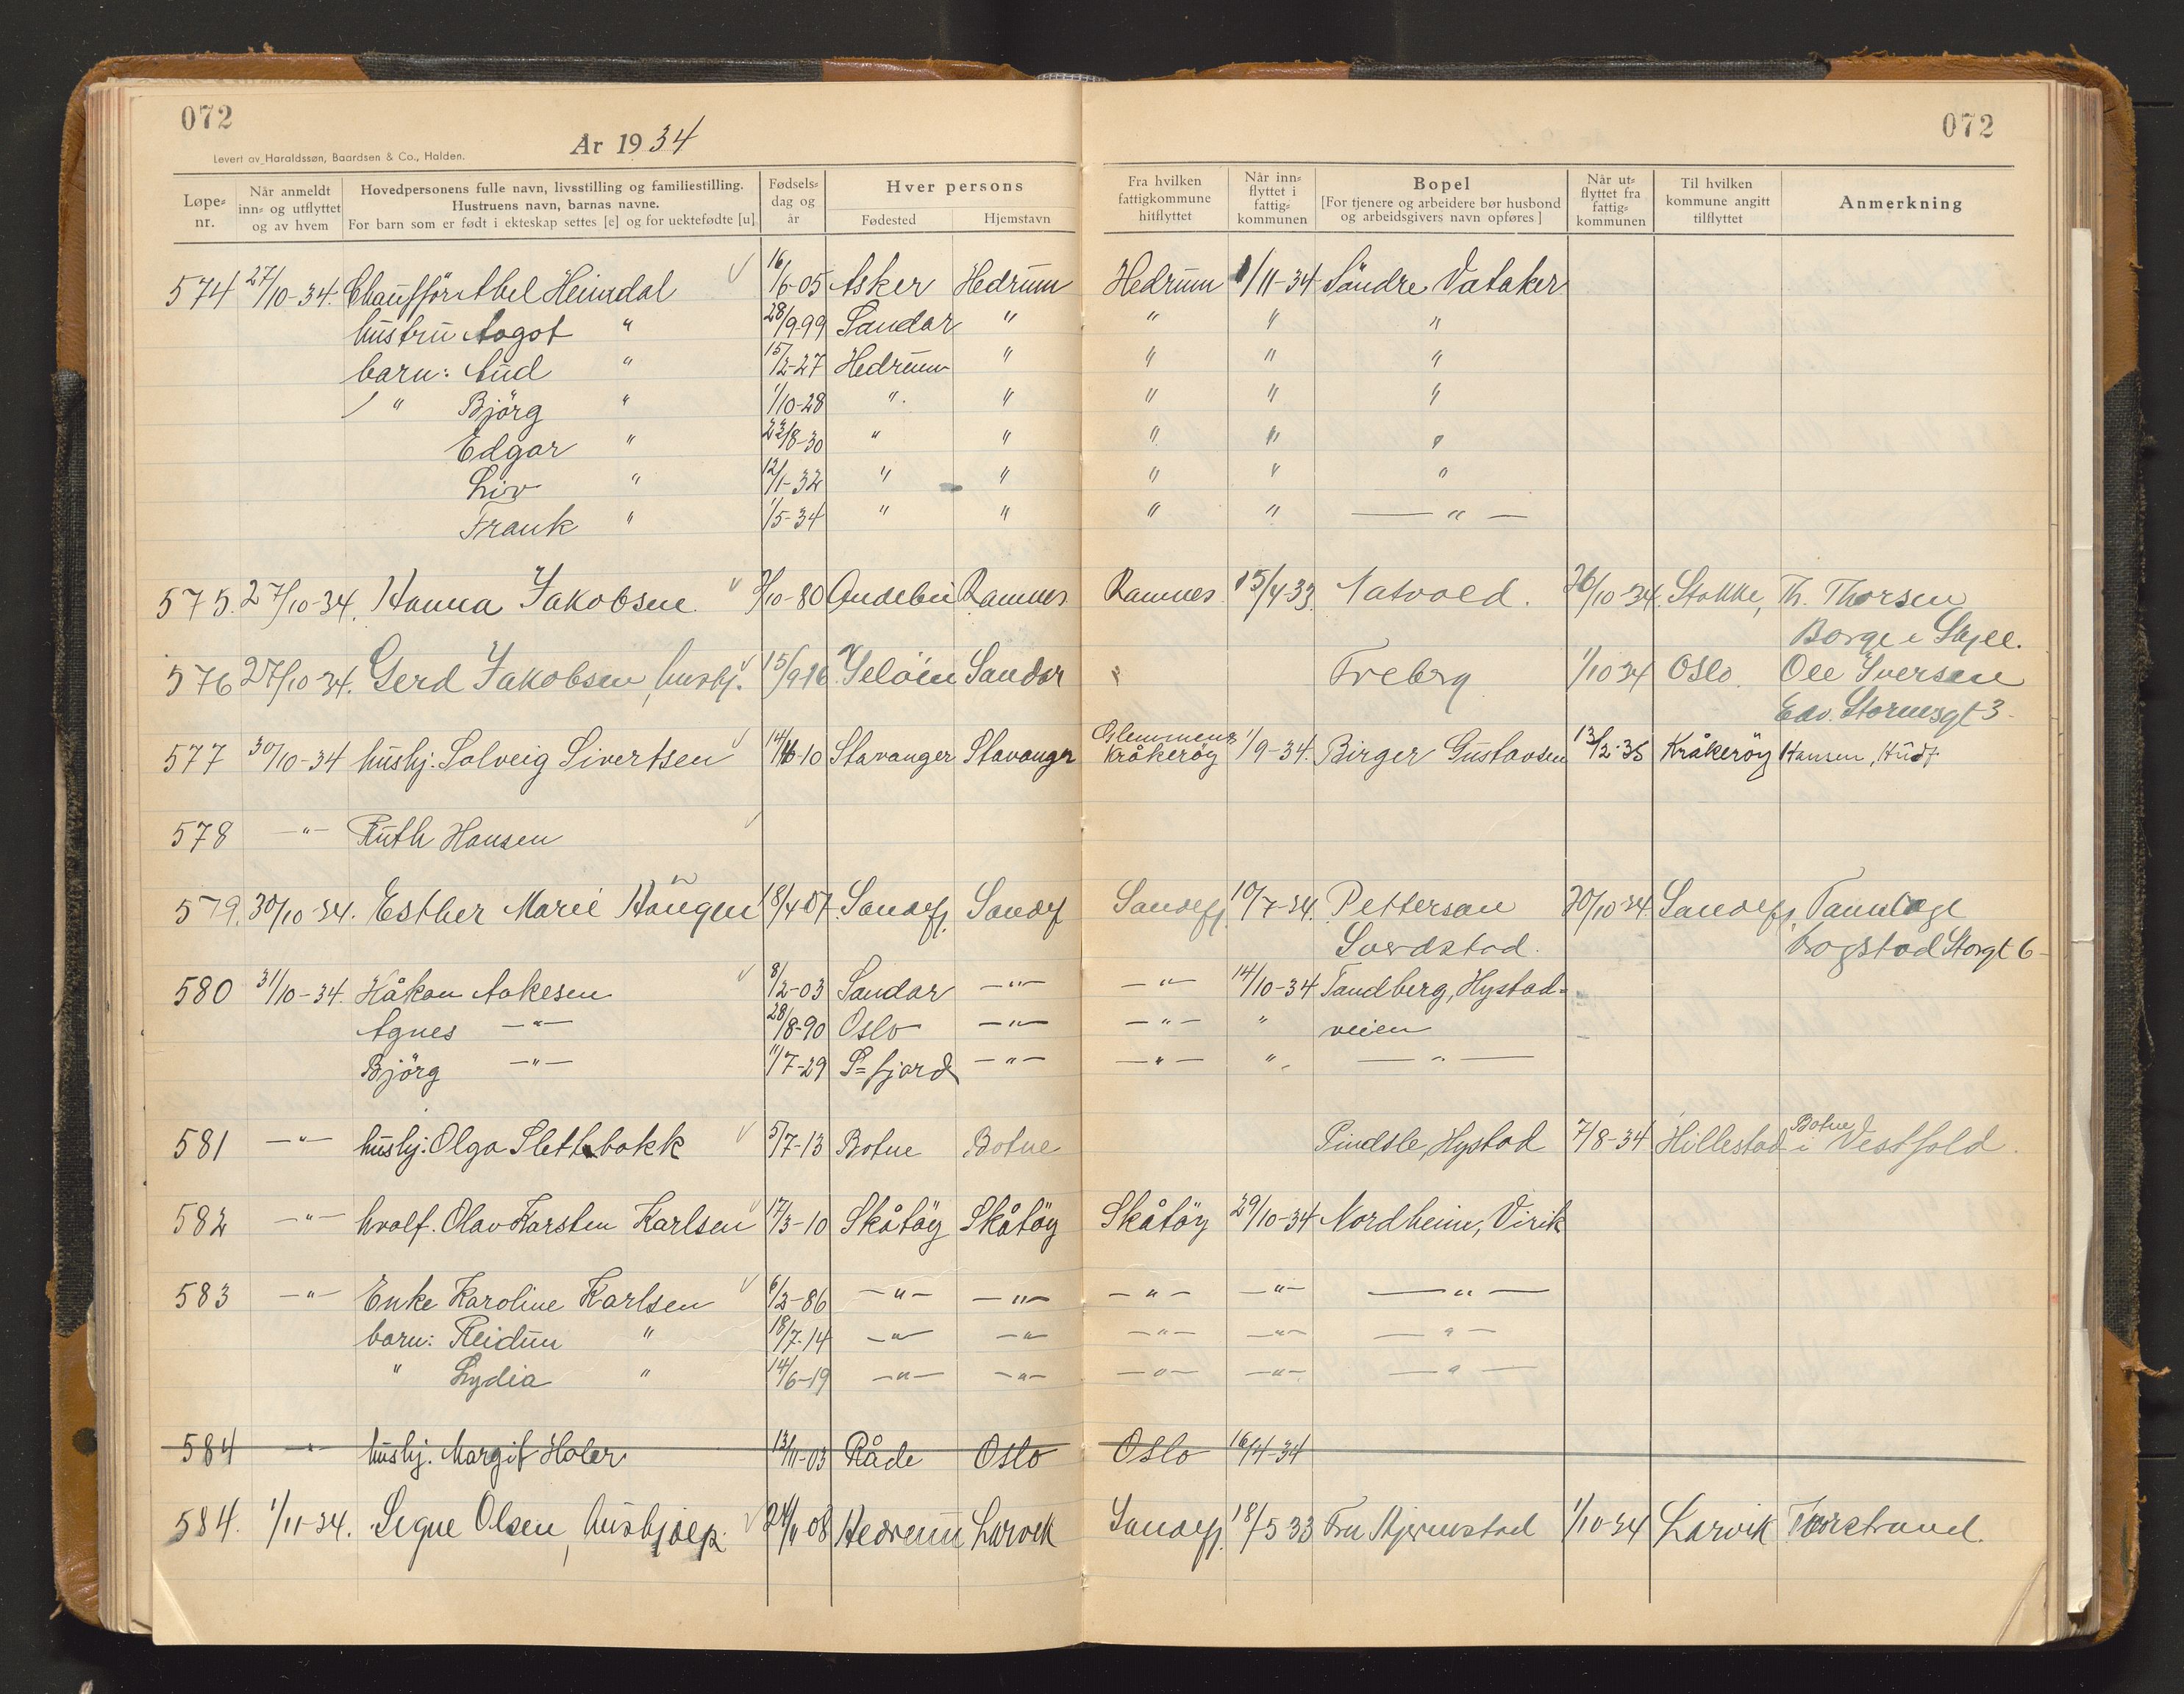 072
072
Levert av Haraldssøn, Baardsen & Co., Halden.
År 1934
Løpe-nr.
Når anmeldt inn- og utflyttet og av hvem
Hovedpersonens fulle navn, livsstilling og familiestilling. Hustruens navn, barnas navne. For barn som er født i ekteskap settes [e] og for uektefødte [u].
Fødsels-dag og år
Hver persons
Fødested
Hjemstavn
Fra hvilken fattigkommune hitflyttet
Når inn-flyttet i fattig-kommunen
Bopel [For tjenere og arbeidere bør husbond og arbeidsgivers navn opføres]
Når ut-flyttet fra fattig-kommunen
Til hvilken kommune angitt tilflyttet
Anmerkning
574 27/10-34. Chaufför Abel Heimdal 16/6-05 Asker Hedrum Hedrum 1/11-34 Söndre Vataker
hustru Aagot " 28/9-99 Sandar " " " "
barn: Aud " 15/2-27 Hedrum " " " "
" Björg " 1/10-28 " " " " "
Edgar " 23/8-30 " " " " "
Liv " 12/1-32 " " " " "
Frank " 1/5-34 " " " " — " —
575. 27/10-34. Hanna Jakobsen /10-80 Andebu Ramnes Ramnes 15/4-33. Natvold. 26/10-34. Stokke, Th. Thorsen
Borge i Skjee.
576 27/10-34. Gerd Jakobsen, hushj. 15/9 16 Jelöen Sandar " Trebry 1/10 34 Oslo. Ole Iversen
Edv. Stormsgt 3.
577 30/10-34 hushj. Solveig Sivertsen 14/10-10 Stavanger Stavanger Glemmens Kråkeröy 1/9-34. Birger Gustavsen 13/2-35 Kråkeröy Hansen,
578 —"— Ruth Hansen
579. 30/10-34. Esther Marie Haugen 18/4 07 Sandefj. Sandef Sandefj. 10/7-34. Pettersen 30/10-34. Sandefj. Tannlæge
Sverdstad. Bogstad Storgt 6
580 31/10-34. Håkon Aakesen 8/2-03 Sandar —"— —"— 14/10-34 Tandberg, Hystad-
Agnes —"— 28/8-90 Oslo —"— —"— " veien
Björg —"— 11/7-29 S=fjord —"— —"— " — " —
581 —"— hushj: Olga Slettebakk 5/7-13 Botne Botne Pindsle, Hystad 7/8-34 Hillestad i Botne Vestfold.
582 —"— hvalf. Olav Karsten Karlsen 17/3-10 Skåtöy Skåtöy Skåtöy 29/10-34 Nordheim, Virik
583 —"— Enke Karoline Karlsen 6/2-86 —"— —"— —"— —"— —"—
barn: Reidun " 18/7-14 —"— —"— —"— —"— —"—
" Lydia " 14/6-19 —"— —"— —"— —"— —"—
584 —"— hushj. Margit Holer 13/11-03 Råde Oslo Oslo 16/4-34
584. 1/11-34. Signe Olsen, hushjælp. 24/11 08 Hedrum Larvik Sandefj. 18/5 33 Fru Bjernestad 1/10-34 Larvik Torstrand.